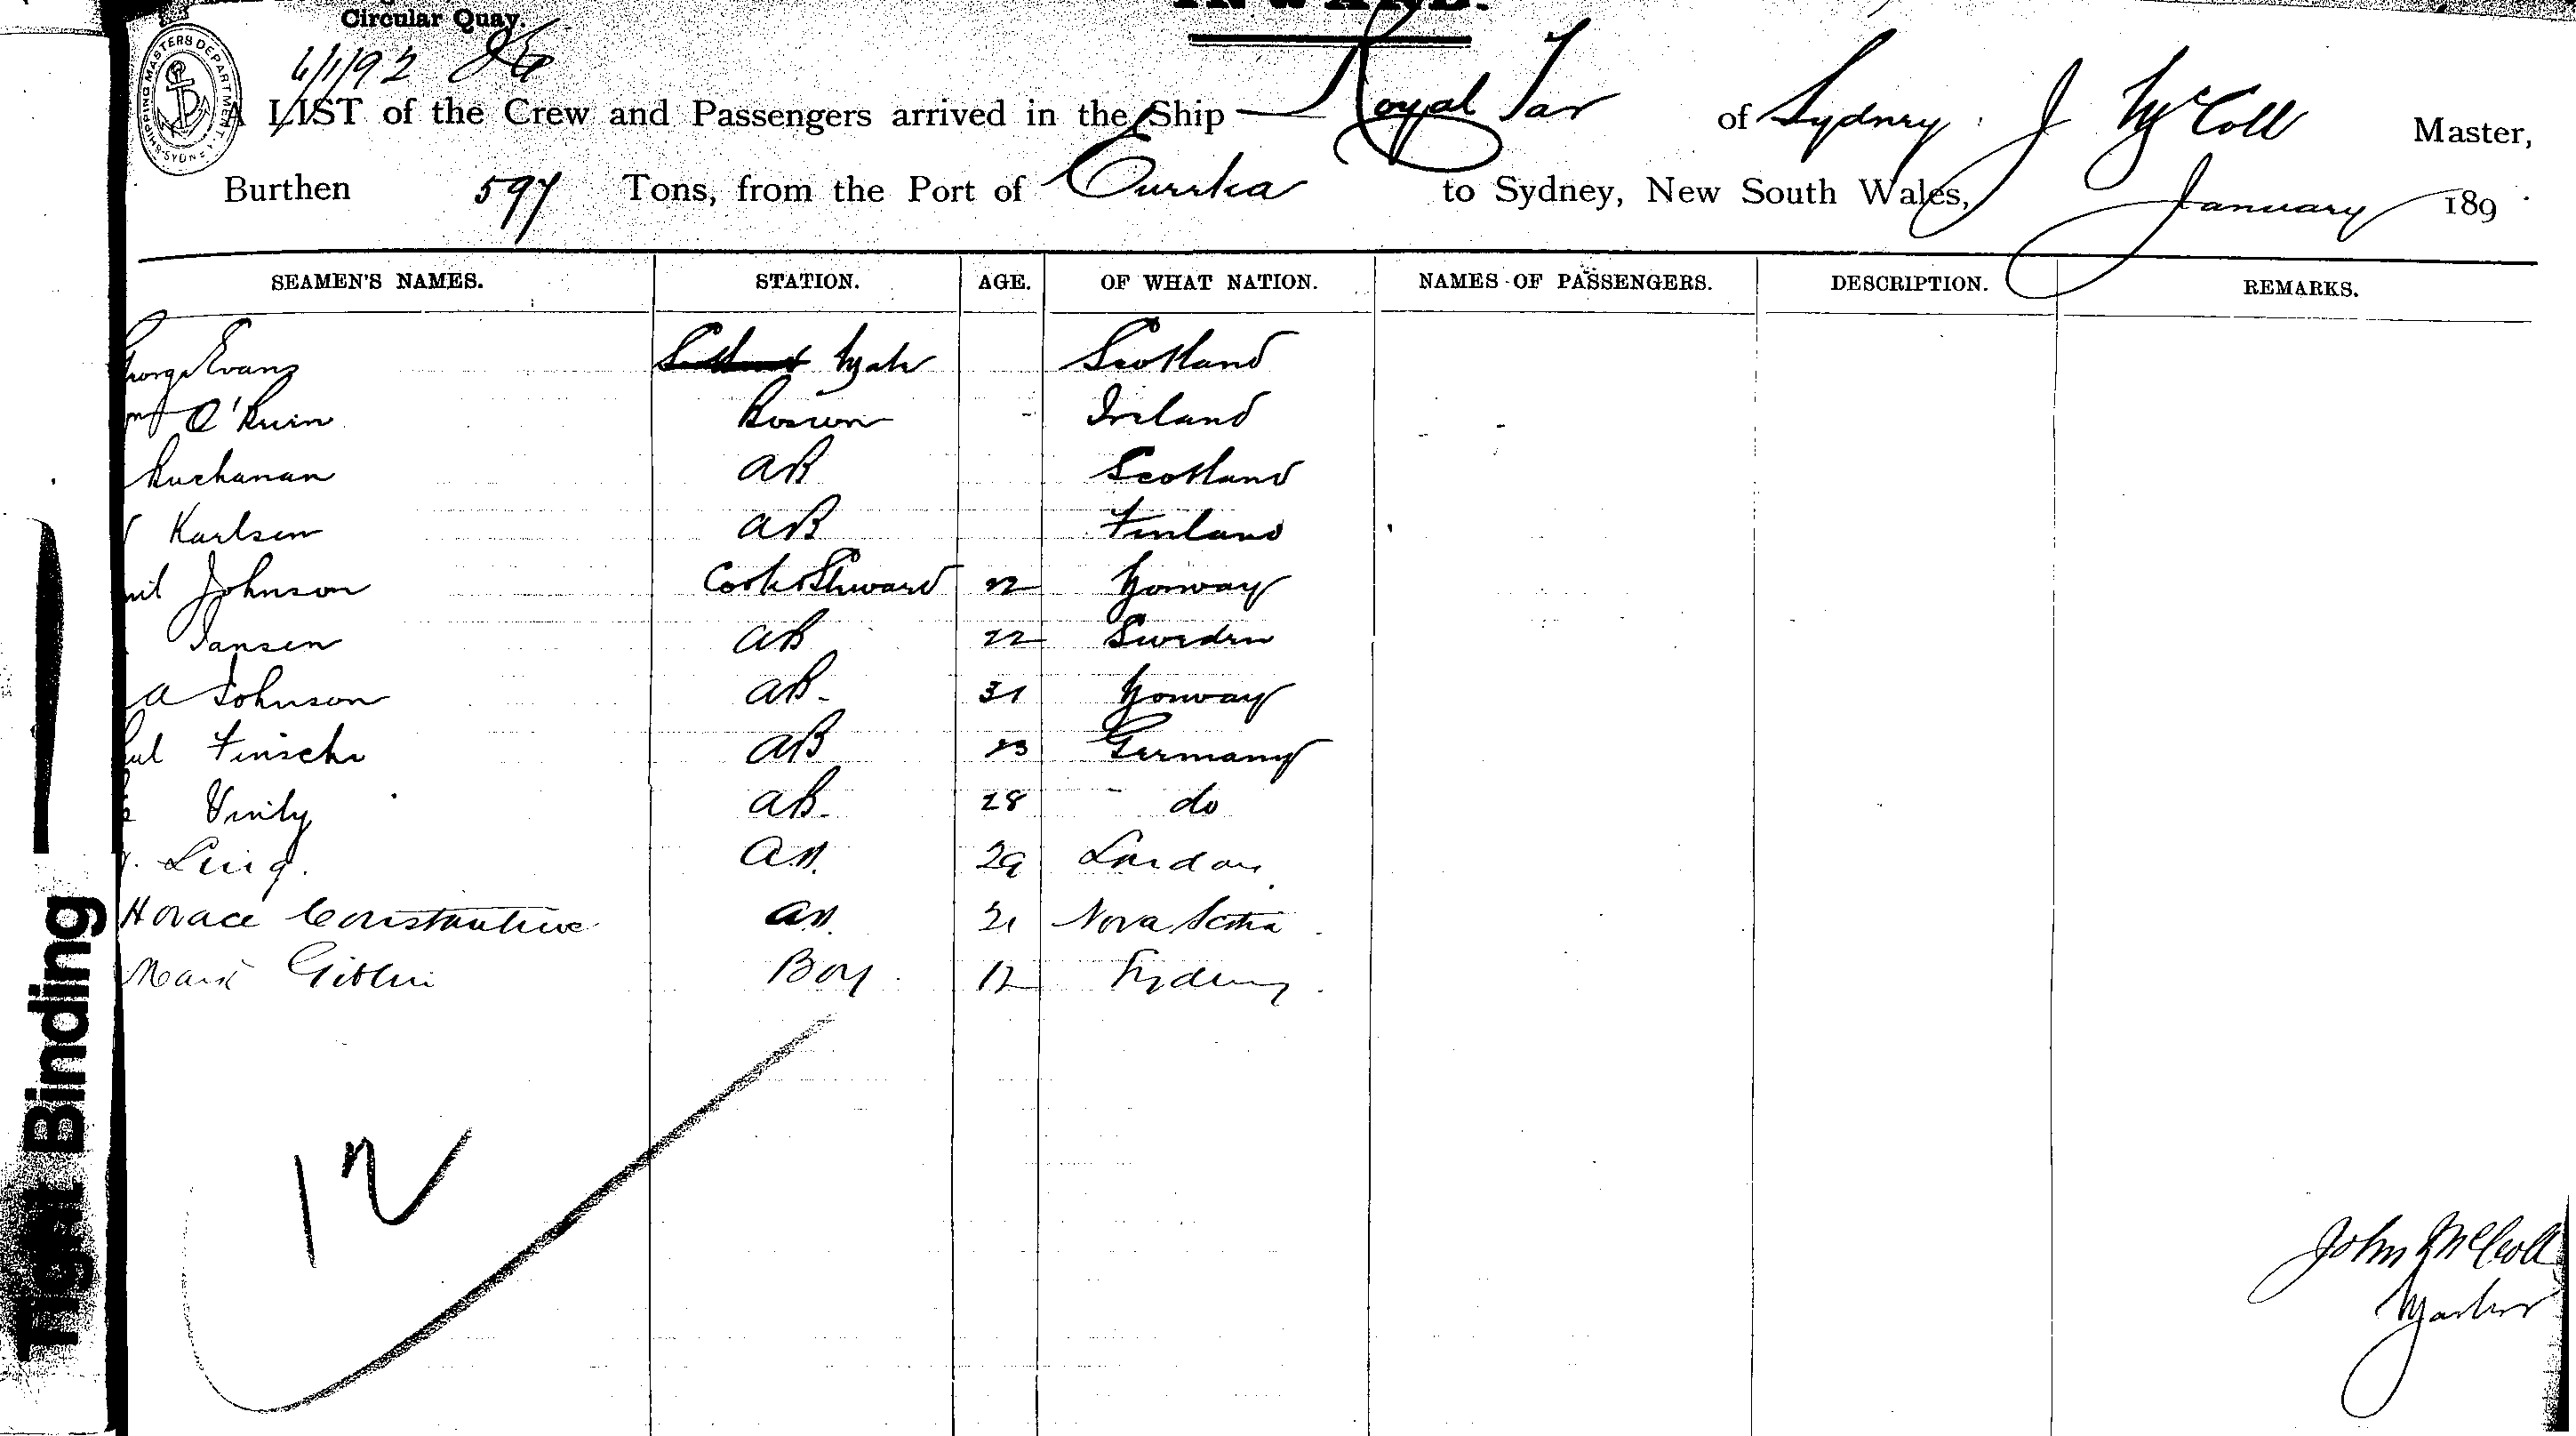 Circular Quay.
SHIPPING MASTERS DEPARTMENT SYDNEY
6/1/92
A LIST of the Crew and Passengers arrived in the Ship Royal Tar of Sydney. J McColl Master,
Burthen 597 Tons, from the Port of Eureka to Sydney, New South Wales, January 189
SEAMEN'S NAMES. STATION. AGE. OF WHAT NATION. NAMES OF PASSENGERS. DESCRIPTION. REMARKS.
George Evans Mate Scotland
O'Brien Bosun Ireland
Buchanan AB Scotland
Karlsen AB Finland
Johnson Cook & Steward 22 Norway
Jansen AB 22 Sweden
A Johnson AB. 31 Norway
Finsche AB 23 Germany
Verily AB. 28 do
Ling. AB. 29 London.
Horace Constantine AB. 21 Nova Scotia.
Mark Giblin Boy. 12 Sydney.
12
John McColl
Master
Tight Binding